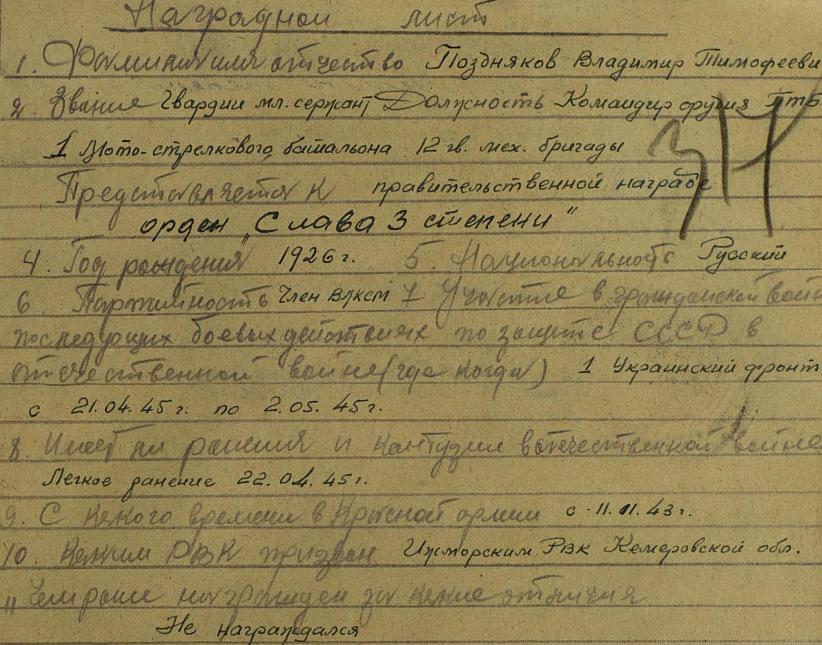 Наградной лист
1. Фамилия имя отчество Поздняков Владимир Тимофееви
2 Звание Гвардии мл. сержант Должность Командир орудия ПТБ
1 Мото-стрелкового батальона 12 гв. мех. бригады
Представляется к правительственной награде
орден „Слава 3 степени"
4. Год рождения 1926 г. 5. Национальность Русский
6 Партийность Член ВЛКСМ 7 Участие в гражданской войн
последующих боевых действиях по защите СССР в
отечественной войне (где когда) 1 Украинский фронт
с 21.04.45 г. по 2.05.45 г.
8. Имеет ли ранения и контузии в отечественной войне
Легкое ранение 22.04.45 г.
9. С какого времени в Красной армии с 11.11.43 г.
10. Каким РВК призван Ижморским РВК Кемеровской обл.
11 Чем ранее награжден за какие отличия
Не награждался